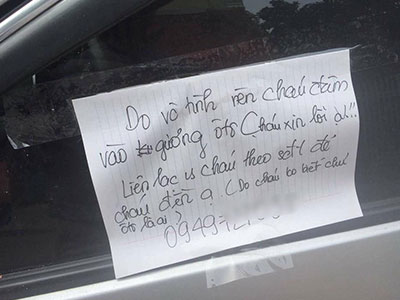 Do vô tình nên cháu đâm
vào gương ôtô Cháu xin lỗi ạ!!
Liên lạc vs cháu theo sđt để
cháu đền ạ (Do cháu ko biết chủ
ôtô là ai)
0949